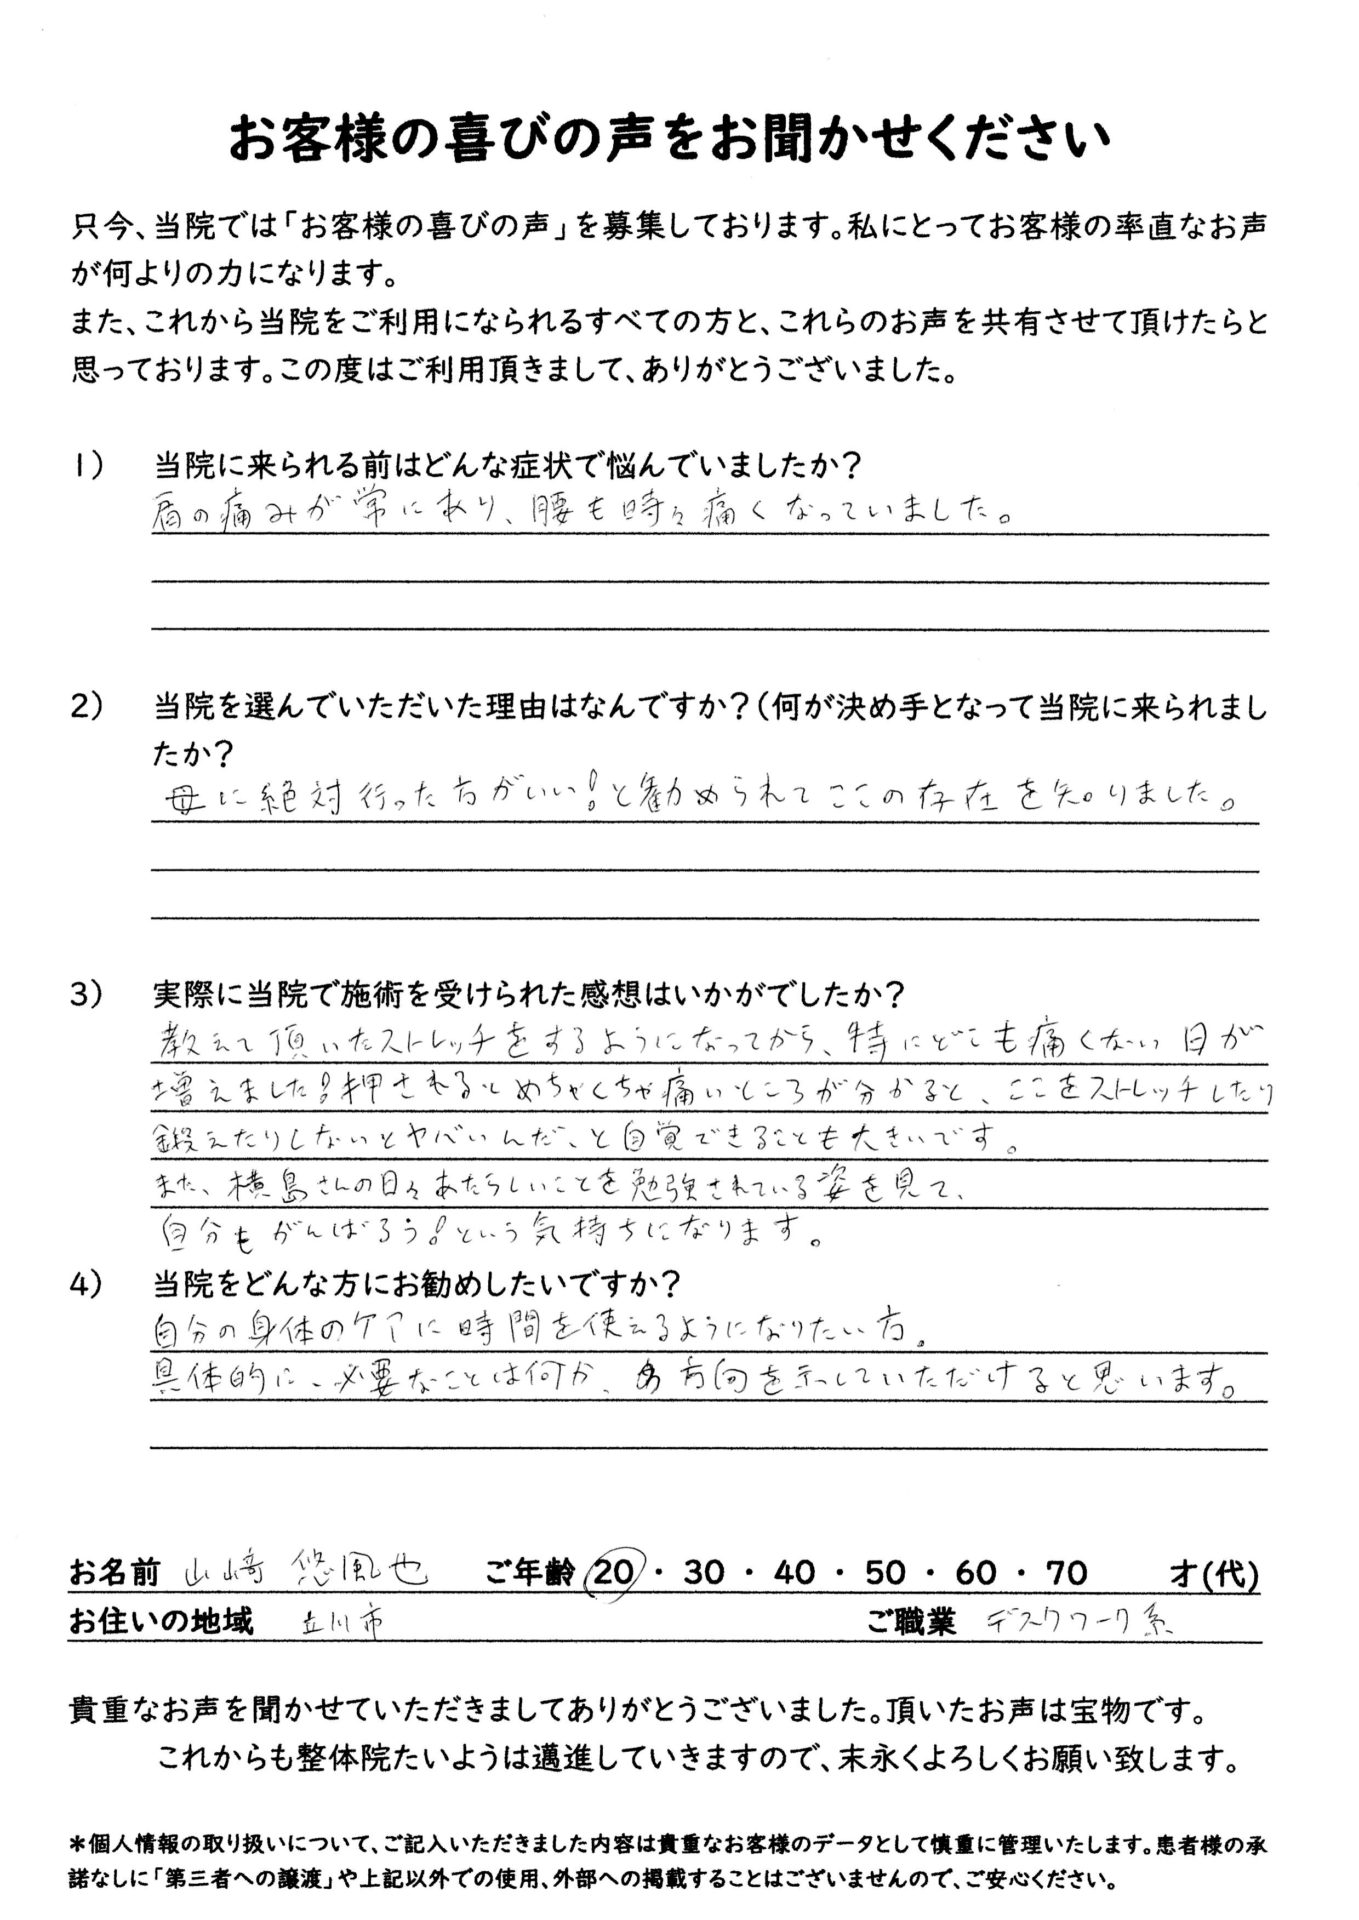 お客様の喜びの声をお聞かせください
只今、当院では「お客様の喜びの声」を募集しております。私にとってお客様の率直なお声
が何よりの力になります。
また、これから当院をご利用になられるすべての方と、これらのお声を共有させて頂けたらと
思っております。この度はご利用頂きまして、ありがとうございました。
1) 当院に来られる前はどんな症状で悩んでいましたか?
肩の痛みが常にあり、腰も時々痛くなっていました。
2) 当院を選んでいただいた理由はなんですか?(何が決め手となって当院に来られまし
たか?
母に絶対行った方がいい!と勧められてここの存在を知りました。
3) 実際に当院で施術を受けられた感想はいかがでしたか?
教えて頂いたストレッチをするようになってから、特にどこも痛くない日が
増えました!押されるとめちゃくちゃ痛いところが分かると、ここをストレッチしたり
鍛えたりしないとヤバいんだ、と自覚できることも大きいです。
また、横島さんの日々あたらしいことを勉強されている姿を見て、
自分もがんばろう!という気持ちになります。
4) 当院をどんな方にお勧めしたいですか?
自分の身体のケアに時間を使えるようになりたい方。
具体的に、必要なことは何か、方向を示していただけると思います。
お名前 山﨑 悠風也 ご年齢 20・30・40・50・60・70 才(代)
お住いの地域 立川市 ご職業 デスクワーク系
貴重なお声を聞かせていただきましてありがとうございました。頂いたお声は宝物です。
これからも整体院たいようは邁進していきますので、末永くよろしくお願い致します。
*個人情報の取り扱いについて、ご記入いただきました内容は貴重なお客様のデータとして慎重に管理いたします。患者様の承
諾なしに「第三者への譲渡」や上記以外での使用、外部への掲載することはございませんので、ご安心ください。